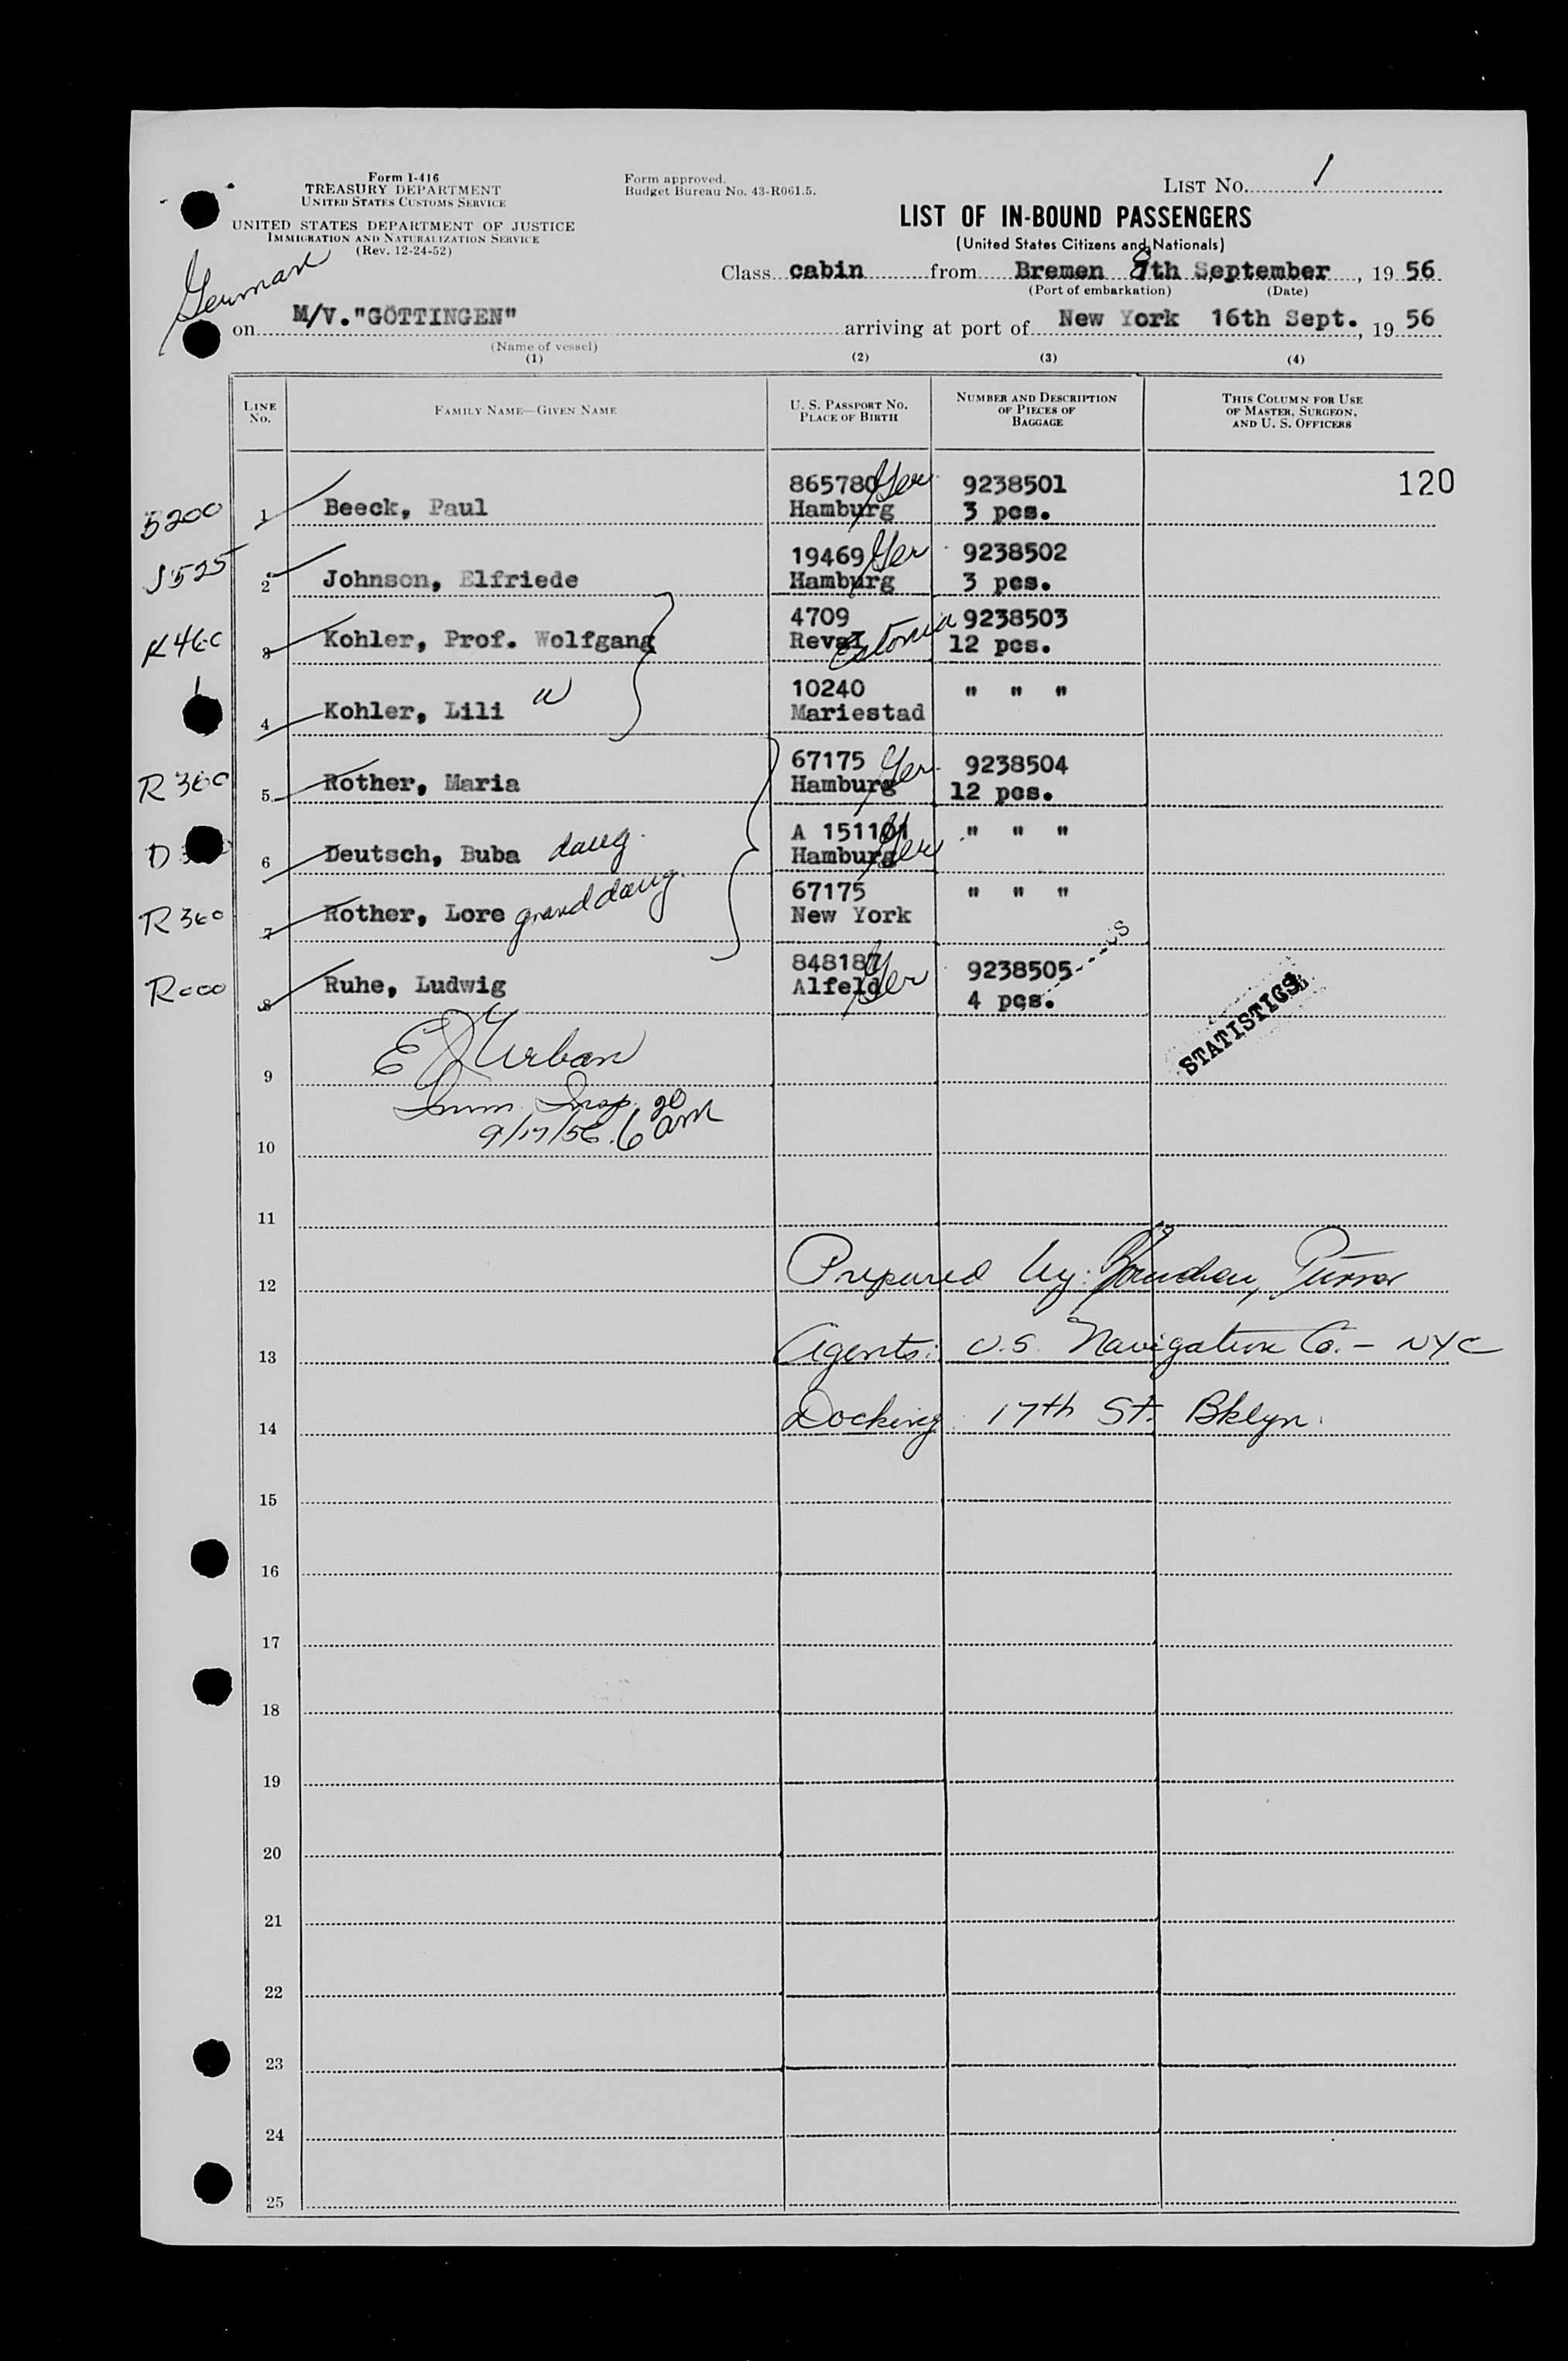 Form I-416
TREASURY DEPARTMENT
UNITED STATES CUSTOMS SERVICE
UNITED STATES DEPARTMENT OF JUSTICE
IMMIGRATION AND NATURALIZATION SERVICE
(Rev. 12-24-52)
Form approved.
Budget Bureau No. 43-R061.5.
LIST NO. 1
LIST OF IN-BOUND PASSENGERS
(United States Citizens and Nationals)
German
Class cabin from Bremen 8th September, 19 56
(Port of embarkation) (Date)
on M/V."GÖTTINGEN" arriving at port of New York 16th Sept., 19 56
(Name of vessel)
(1) (2) (3) (4)
LINE No. FAMILY NAME—GIVEN NAME U. S. PASSPORT NO. PLACE OF BIRTH NUMBER AND DESCRIPTION OF PIECES OF BAGGAGE THIS COLUMN FOR USE OF MASTER, SURGEON, AND U. S. OFFICERS
120
865780 Ger 9238501
B200 1 Beeck, Paul Hamburg 3 pcs.
19469 Ger 9238502
J525 2 Johnson, Elfriede Hamburg 3 pcs.
4709 9238503
K460 3 Kohler, Prof. Wolfgang Reval Estonia 12 pcs.
10240 " " "
4 Kohler, Lili w Mariestad
67175 Ger. 9238504
R360 5 Rother, Maria Hamburg 12 pcs.
A 151101 Ger " " "
D 6 Deutsch, Buba daug. Hamburg
67175 " " "
R360 7 Rother, Lore granddaug. New York
848187 Ger 9238505 US
R000 8 Ruhe, Ludwig Alfeld 4 pcs.
STATISTICS
E J Urban
9
Imm. Insp.
9/17/56. 6 20 am
10
11
12 Prepared by: Purser
13 Agents: U.S. Navigation Co. - NYC
14 Docking 17th St. Bklyn.
15
16
17
18
19
20
21
22
23
24
25